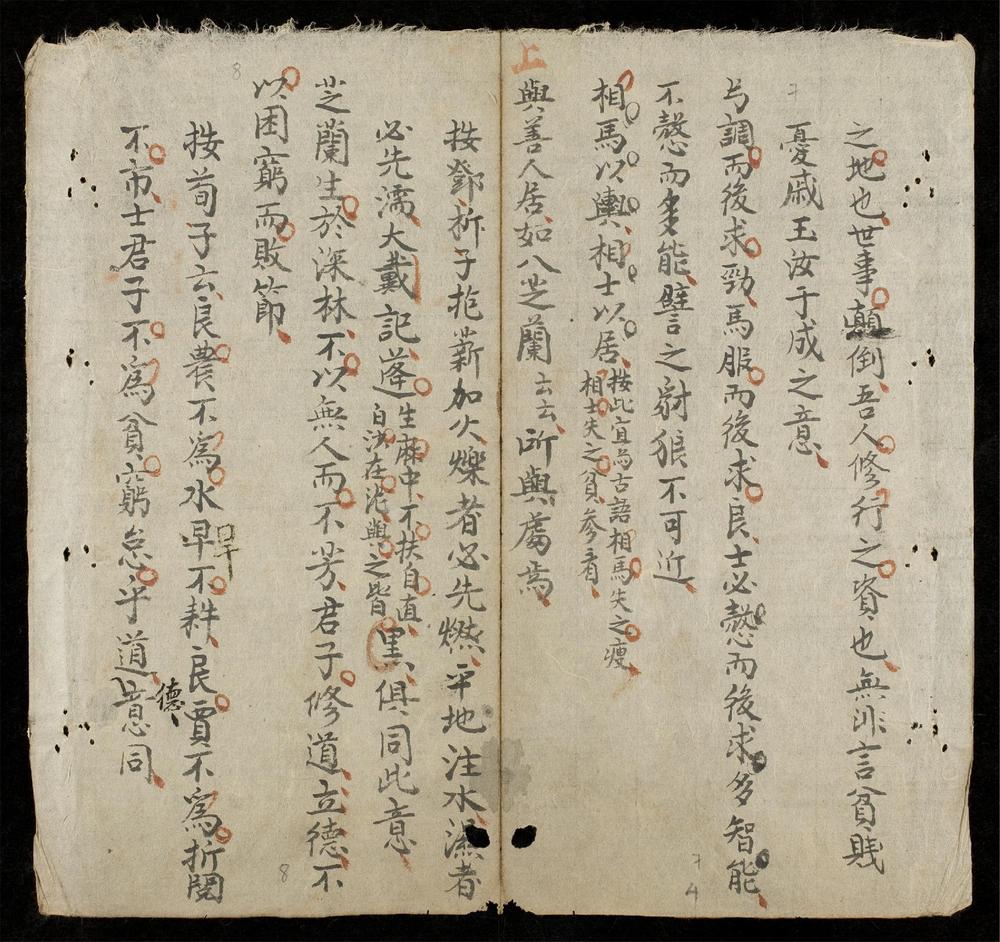 之地也世事顛倒吾人修行之資也無非言貧賤
憂戚玉汝于成之意
弓調而後求勁馬服而後求良士必愨而後求多智能
不愨而多能譬之豺狼不可近
相馬以輿相士以居
按此宜為古語相馬失之瘦
相士失之貧參看
上
與善人居如入芝蘭云云所與處焉
按鄧析子抱薪加火爍者必先燃平地注水濕者
必先濡大戴記蓬
生麻中不扶自直
白沙在泥與之皆
黑俱同此意
芝蘭生於深林不以無人而不芳君子修道立德不
以困窮而敗節
按荀子云良農不為水旱不耕良賈不為折閱
旱
不市士君子不為貧窮怠乎道意同
德
8
8
4